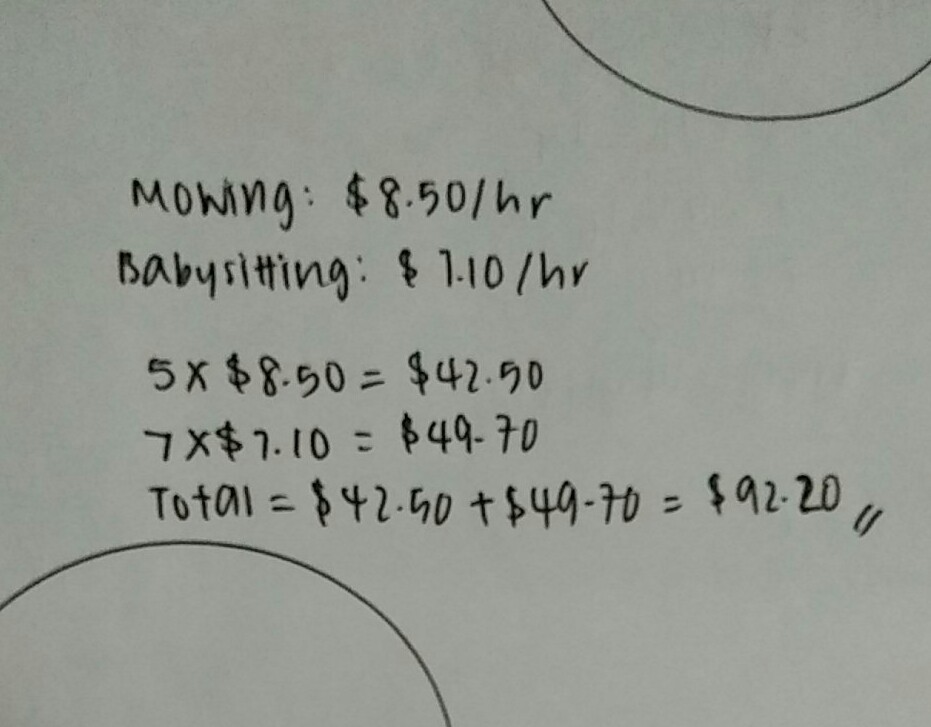 Mowing: $8.50/hr
Babysitting: $7.10/hr
5 x $8.50 = $42.50
7 x $7.10 = $49.70
Total = $42.50 + $49.70 = $92.20 //